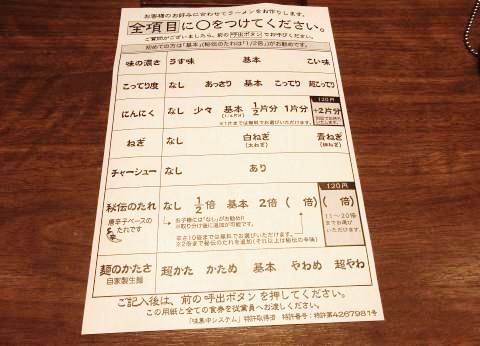 お客様のお好みに合わせてラーメンをお作りします。
全項目に○をつけてください。
ご質問がございましたら、前の呼出ボタンでお呼びください。
初めての方は「基本」(秘伝のたれは「1/2倍」)がお勧めです。
味の濃さ うす味 基本 こい味
こってり度 なし あっさり 基本 こってり 超こってり
にんにく なし 少々 基本 1/2片分 1片分
120円
+2片分
※1片までは無料でお選びいただけます。
ねぎ なし 白ねぎ 青ねぎ
チャーシュー なし あり
秘伝のたれ なし 1/2倍 基本 2倍 ( 倍)
120円
( 倍)
唐辛子ベースの
たれです
お子様には「なし」がお勧め!!
※取り分け後に追加が可能です。
辛さ10倍までは無料でお選びいただけます。
11〜20倍
までお選び
いただけ
ます。
麺のかたさ 超かた かため 基本 やわめ 超やわ
自家製生麺
ご記入後は、前の呼出ボタンを押してください。
この用紙と全ての食券を従業員へお渡しください。
「味集中システム」特許取得済 特許番号：特許第4267981号